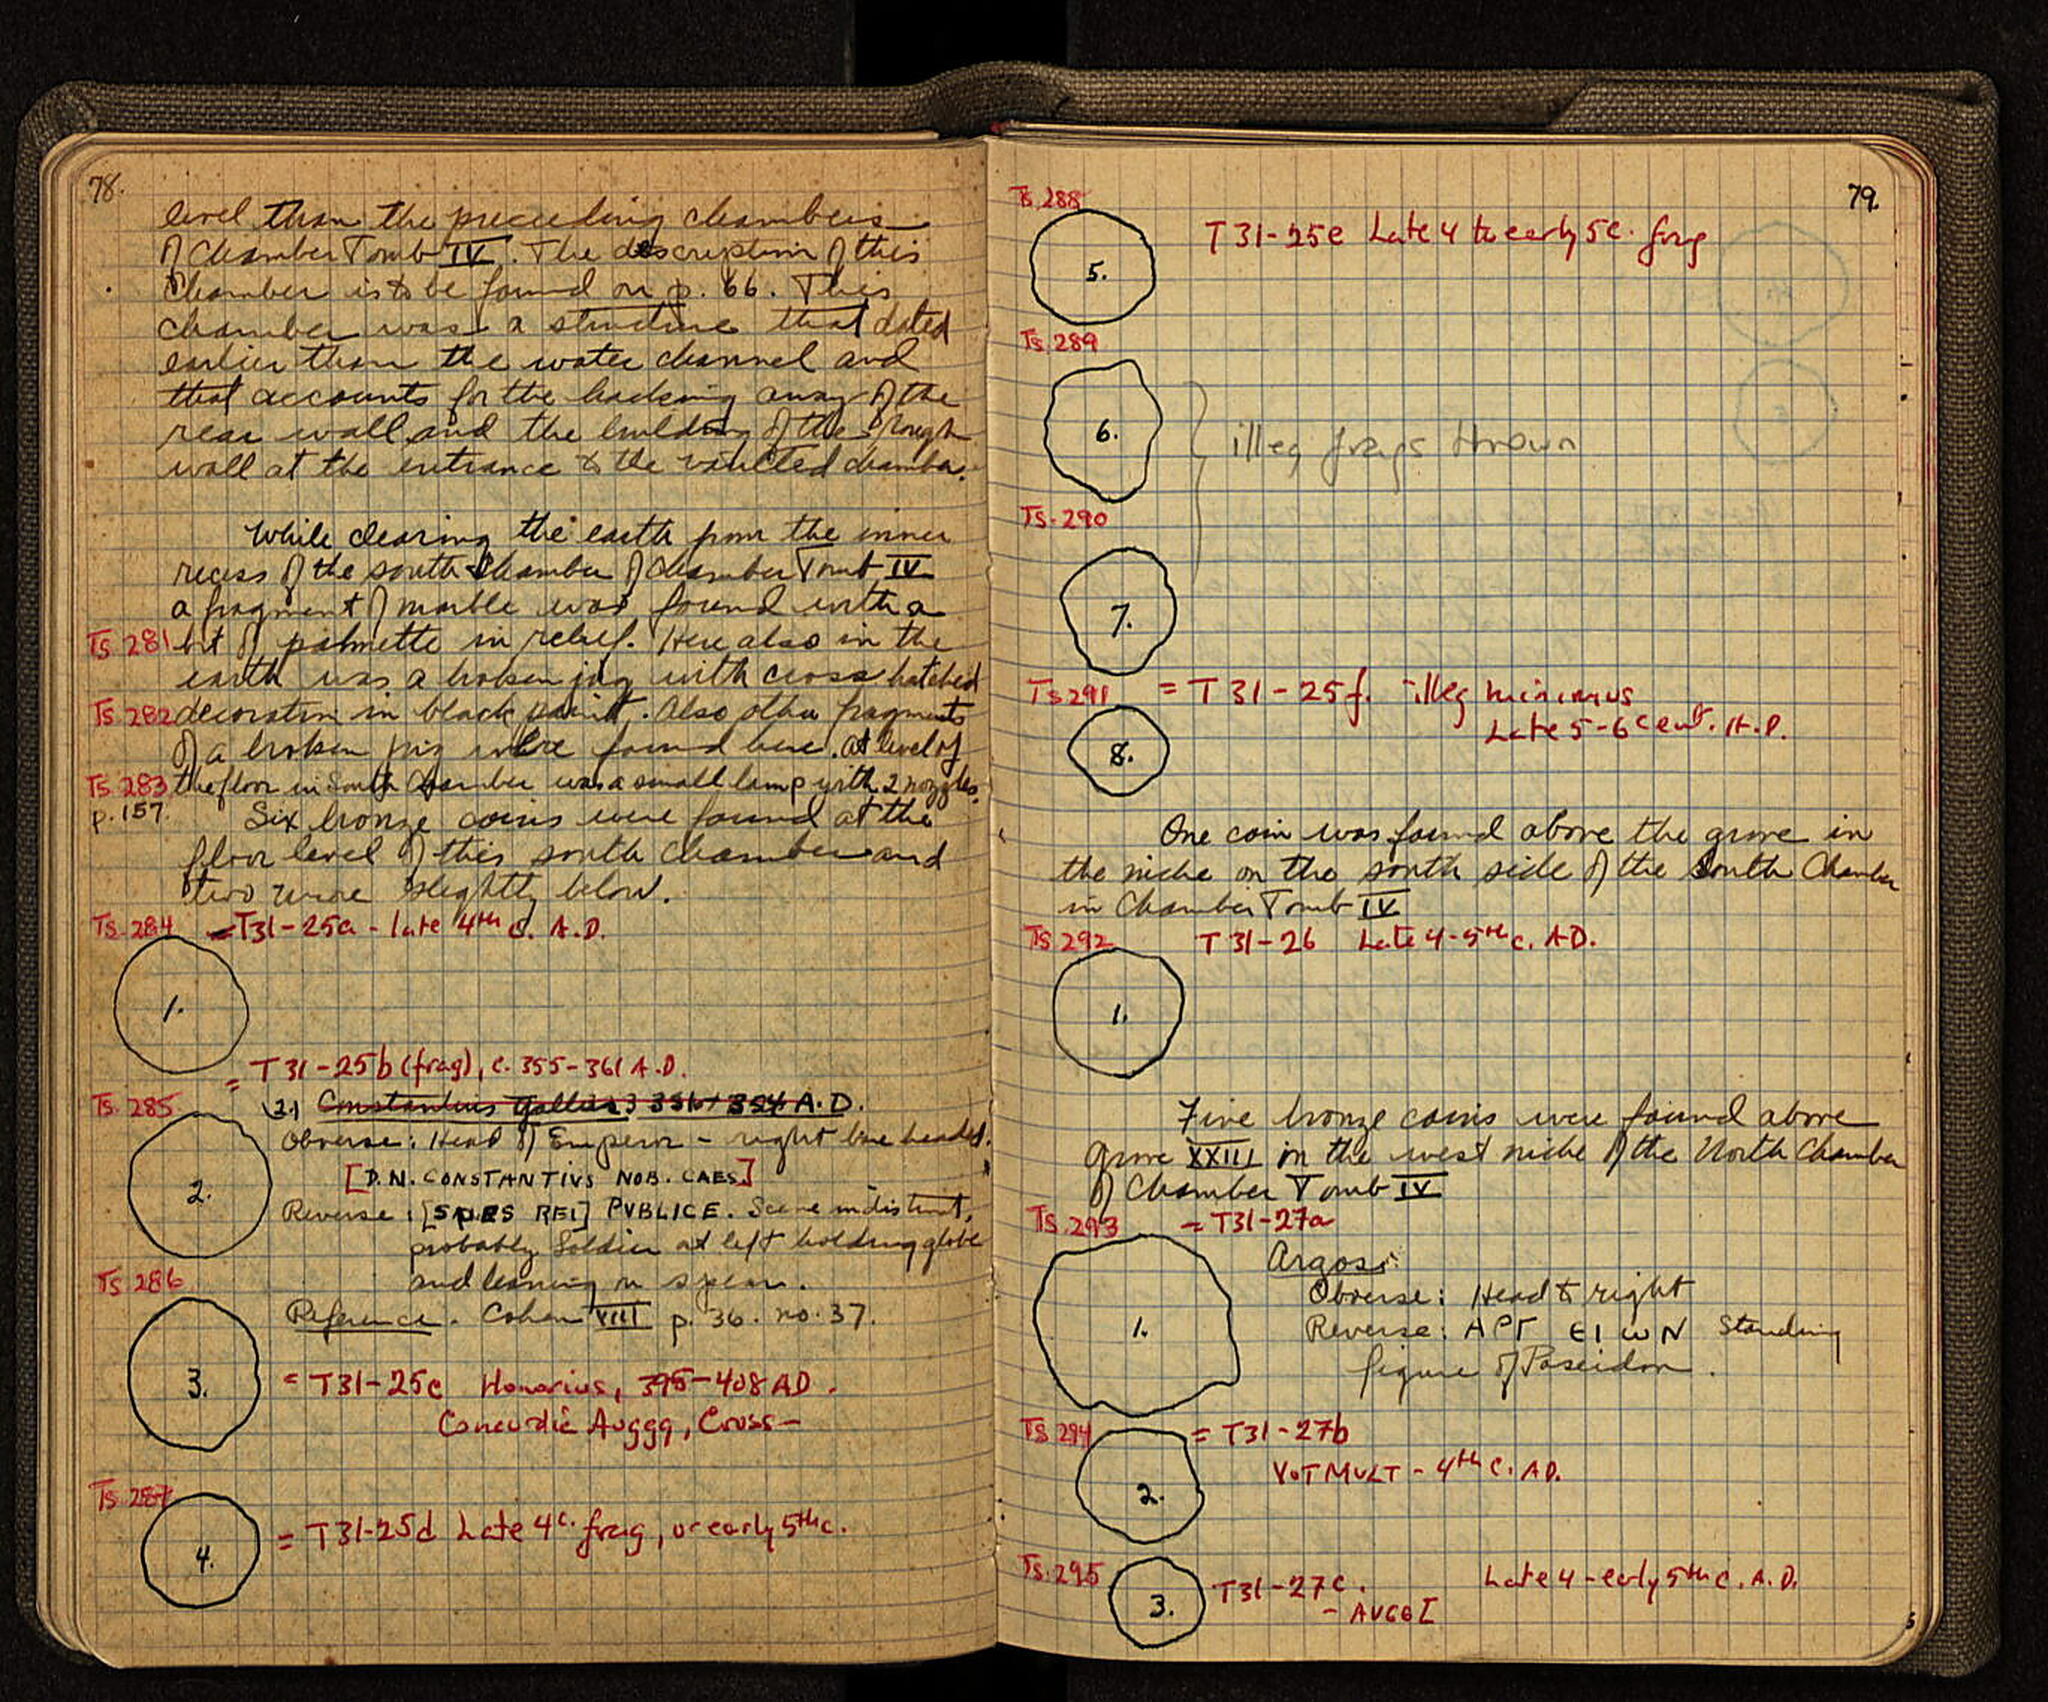 78.
level than the preceeding chambers
of Chamber Tomb IV. The description of this
Chamber is to be found on p. 66. This
chamber was a structure that dated
earlier than the water channel and
that accounts for the hacking away of the
rear wall and the building of the rough
wall at the entrance to the vaulted chamber.
While clearing the earth from the inner
recess of the south chamber of Chamber Tomb IV
a fragment of marble was found with a
Ts 281 bit of palmette in relief. Here also in the
earth was a broken jug with cross hatched
Ts 282 decoration in black paint. Also other fragments
of a broken jug were found here. At level of
Ts 283 the floor in South Chamber was a small lamp with 2 nozzles.
p. 157. Six bronze coins were found at the
floor level of this south chamber and
two were slightly below.
Ts 284 = T31-25a - late 4th c. A.D.
1.
= T31-25b (frag), c. 355-361 A.D.
Ts. 285 2.) Constantius Gallus 351-354 A.D.
Obverse: Head of Emperor - right bare headed.
[D.N. CONSTANTIVS NOB. CAES]
2.
Reverse: [SPES REI] PVBLICE. Scene indistinct,
probably Soldier at left holding globe
Ts 286 and leaning on spear.
Reference. Cohen VIII p. 36. no. 37.
3. = T31-25c Honorius, 395-408 AD.
Concordia Auggg, Cross-
Ts 287
4. = T31-25d Late 4c. frag, or early 5th c.
79.
Ts 288
T31-25e Late 4 to early 5c. frag
5.
Ts 289
6. illeg frags thrown
Ts. 290
7.
Ts 291 = T31-25f. illeg minimus
Late 5-6 cent. A.D.
8.
One coin was found above the grave in
the niche on the south side of the South Chamber
in Chamber Tomb IV
Ts 292 T31-26 Late 4-5th c. A.D.
1.
Five bronze coins were found above
Grave XXIII in the west niche of the North Chamber
of Chamber Tomb IV
Ts. 293 = T31-27a
Argos:
Obverse: Head to right
1. Reverse: APΓ EIWN Standing
figure of Poseidon.
Ts 294 = T31-27b
VOT MULT - 4th c. AD.
2.
Ts. 295 T31-27c. Late 4-early 5th c. A.D.
3. - AVGG[